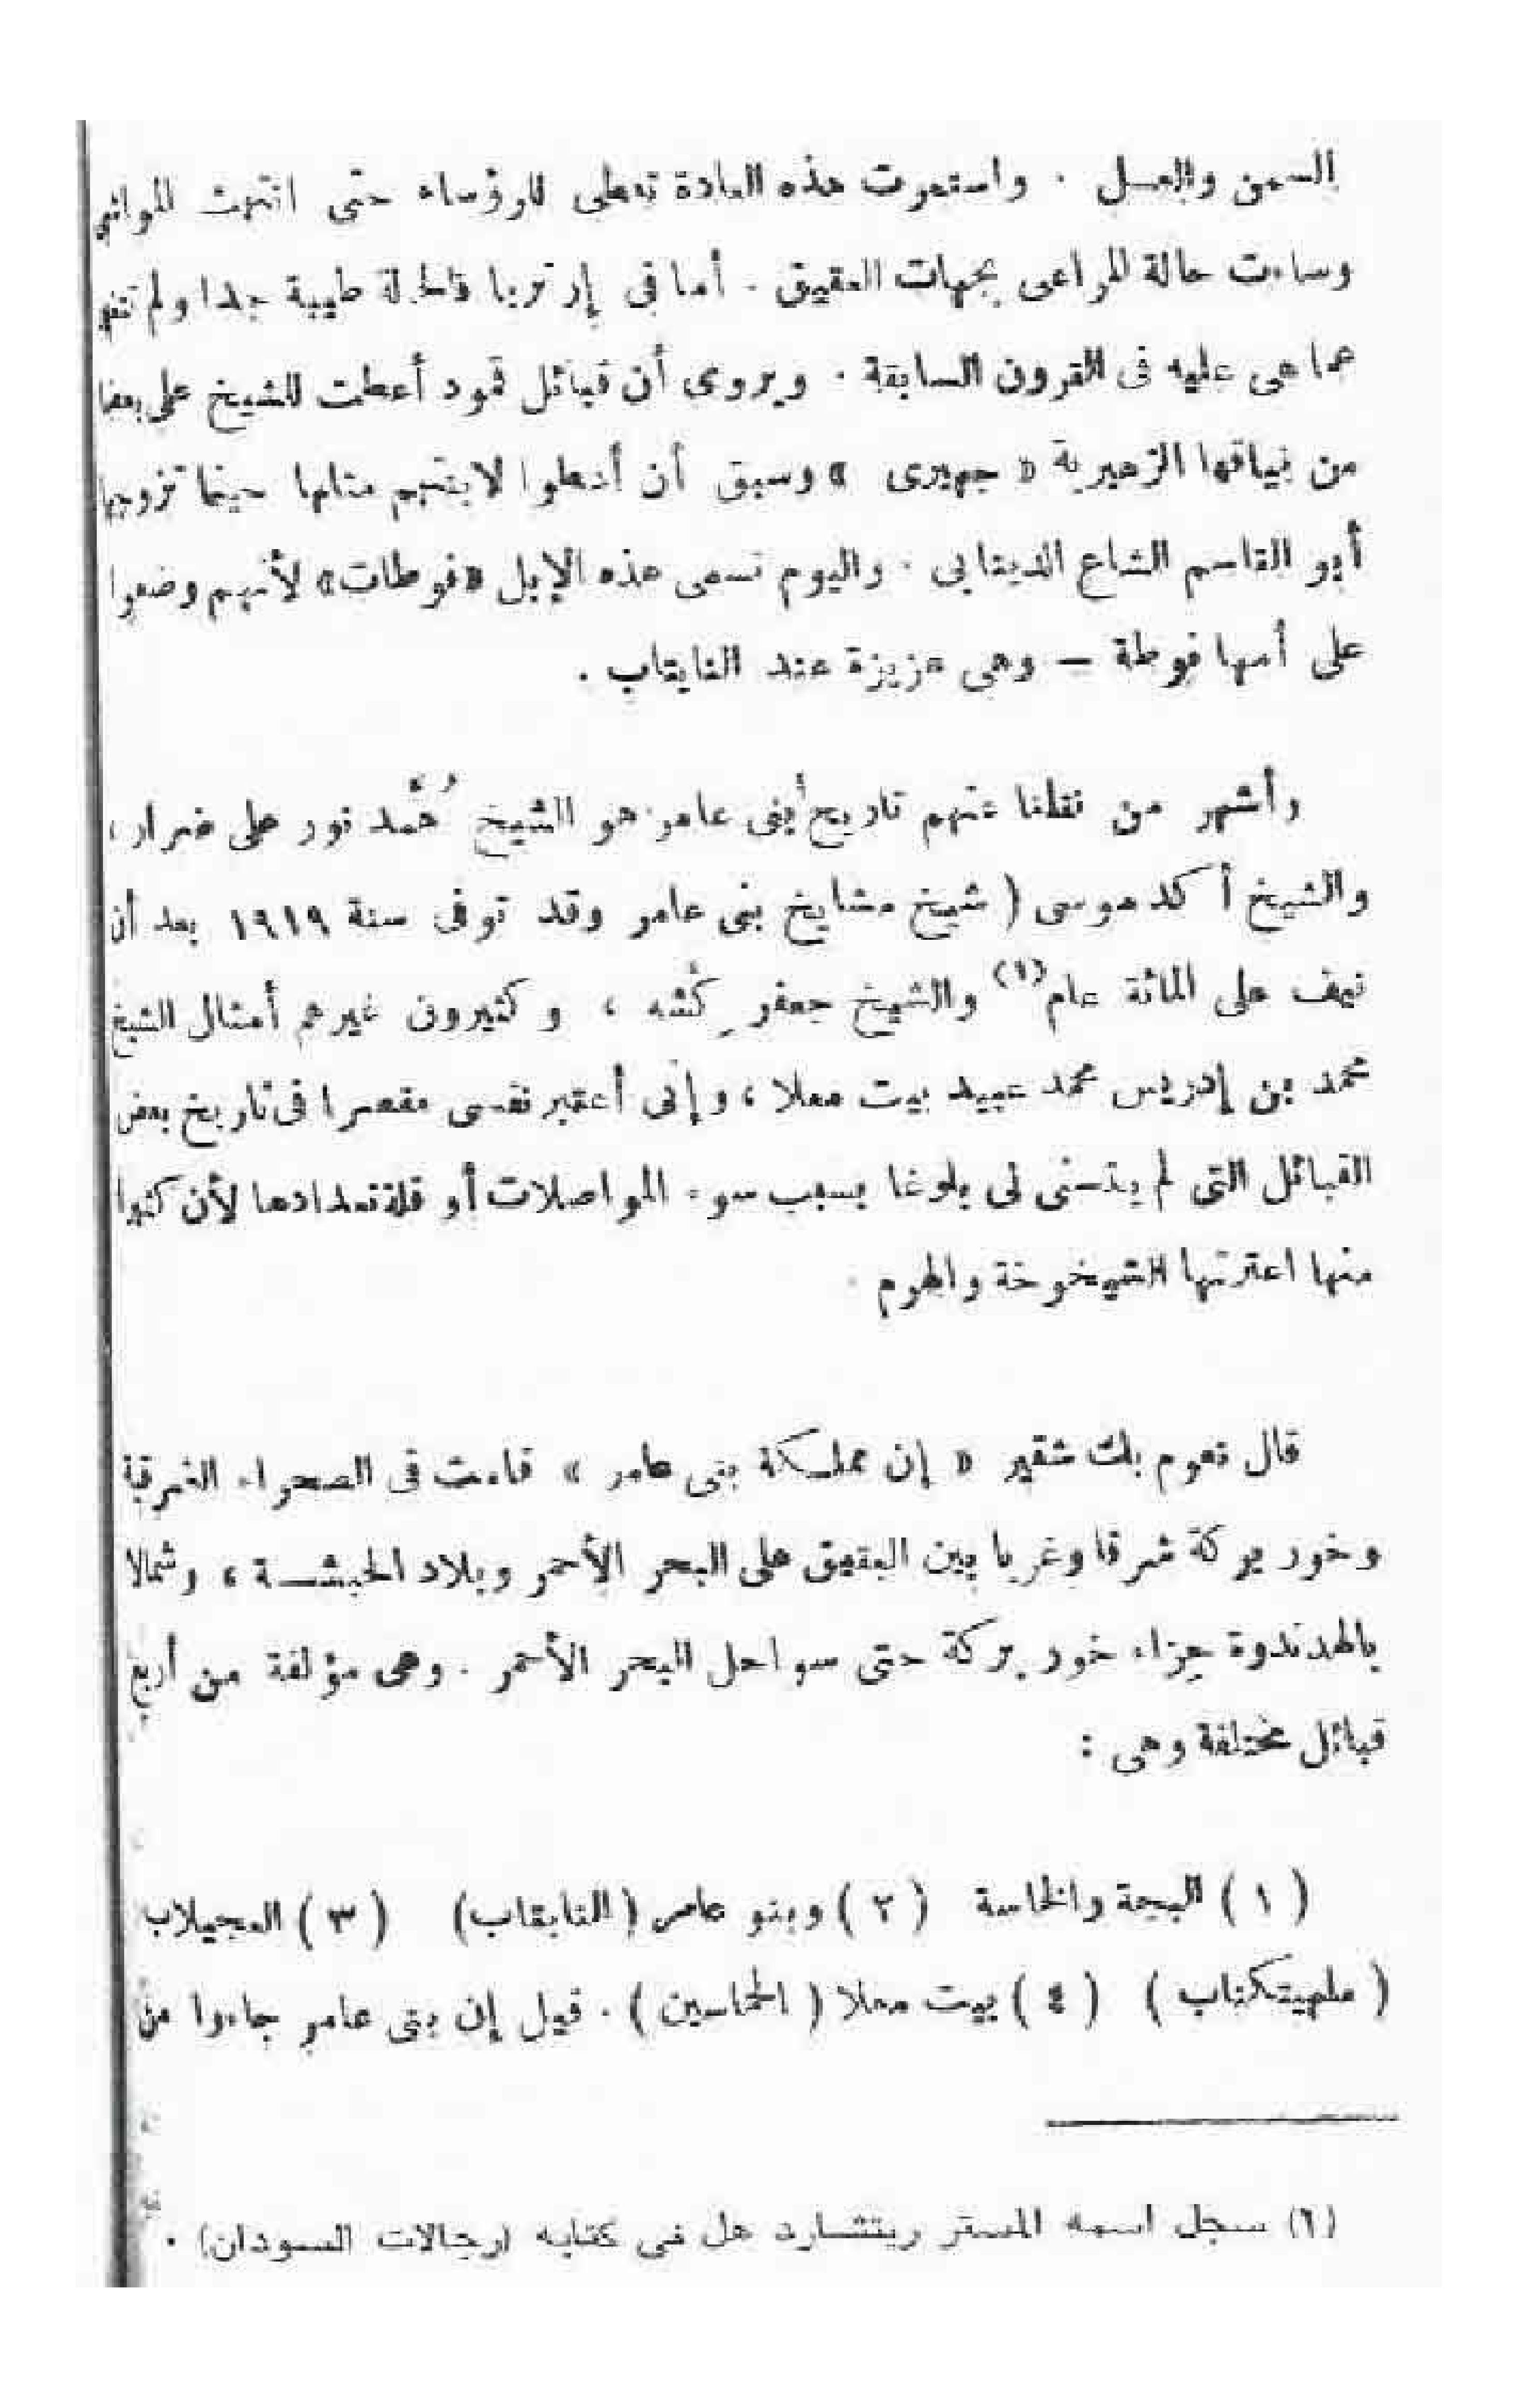 السمن والعسل . واستمرت هذه العادة تعطى للرؤساء حتى انتهت المواشى
وساءت حالة المراعى بجهات العقيق . أما فى إرتريا فالحالة طيبة جدا ولم تتغير
عما هى عليه فى القرون السابقة . ويروى أن قبائل ثمود أعطت للشيخ على بعضا
من نياقها الزهيرية « جهيرى » وسبق أن أعطوا لابنتهم مثلها حينما تزوجها
أبو القاسم الشاع الديتابى . واليوم تسمى هذه الإبل «فوطات» لأنهم وضعوا
على أمها فوطة — وهى عزيزة عند النابتاب .
وأشهر من نقلنا عنهم تاريخ بنى عامر هو الشيخ مُحمَّد نور على ضرار ،
والشيخ أكد موسى ( شيخ مشايخ بنى عامر وقد توفى سنة ١٩١٩ بعد أن
نيف على المائة عام(١) والشيخ جعفر كُشه ، وكثيرون غيرهم أمثال الشيخ
محمد بن إدريس محمد عبيد بيت معلا ، وإنى أعتبر نفسى مقصرا فى تاريخ بعض
القبائل التى لم يتسنى لى بلوغا بسبب سوء المواصلات أو قلة تعدادها لأن كثيرا
منها اعترتها الشيخوخة والهرم
قال نعوم بك شقير « إن مملكة بنى عامر » قامت فى الصحراء الشرقية
وخور بركة شرقا وغربا بين العقيق على البحر الأحمر وبلاد الحبشة ، وشمالا
بالهدندوة جزاء خور بركة حتى سواحل البحر الأحمر . وهى مؤلفة من أربع
قبائل مختلفة وهى :
( ١ ) البجة والخاسة ( ٢ ) وبنو عامر ( النابتاب ) ( ٣ ) العجيلاب
( ملهيتكناب ) ( ٤ ) بيت معلا ( الحماسين ) . قيل إن بنى عامر جاءوا من
(٦) سجل اسمه المستر ريتشارد هل فى كتابه (رجالات السودان) .